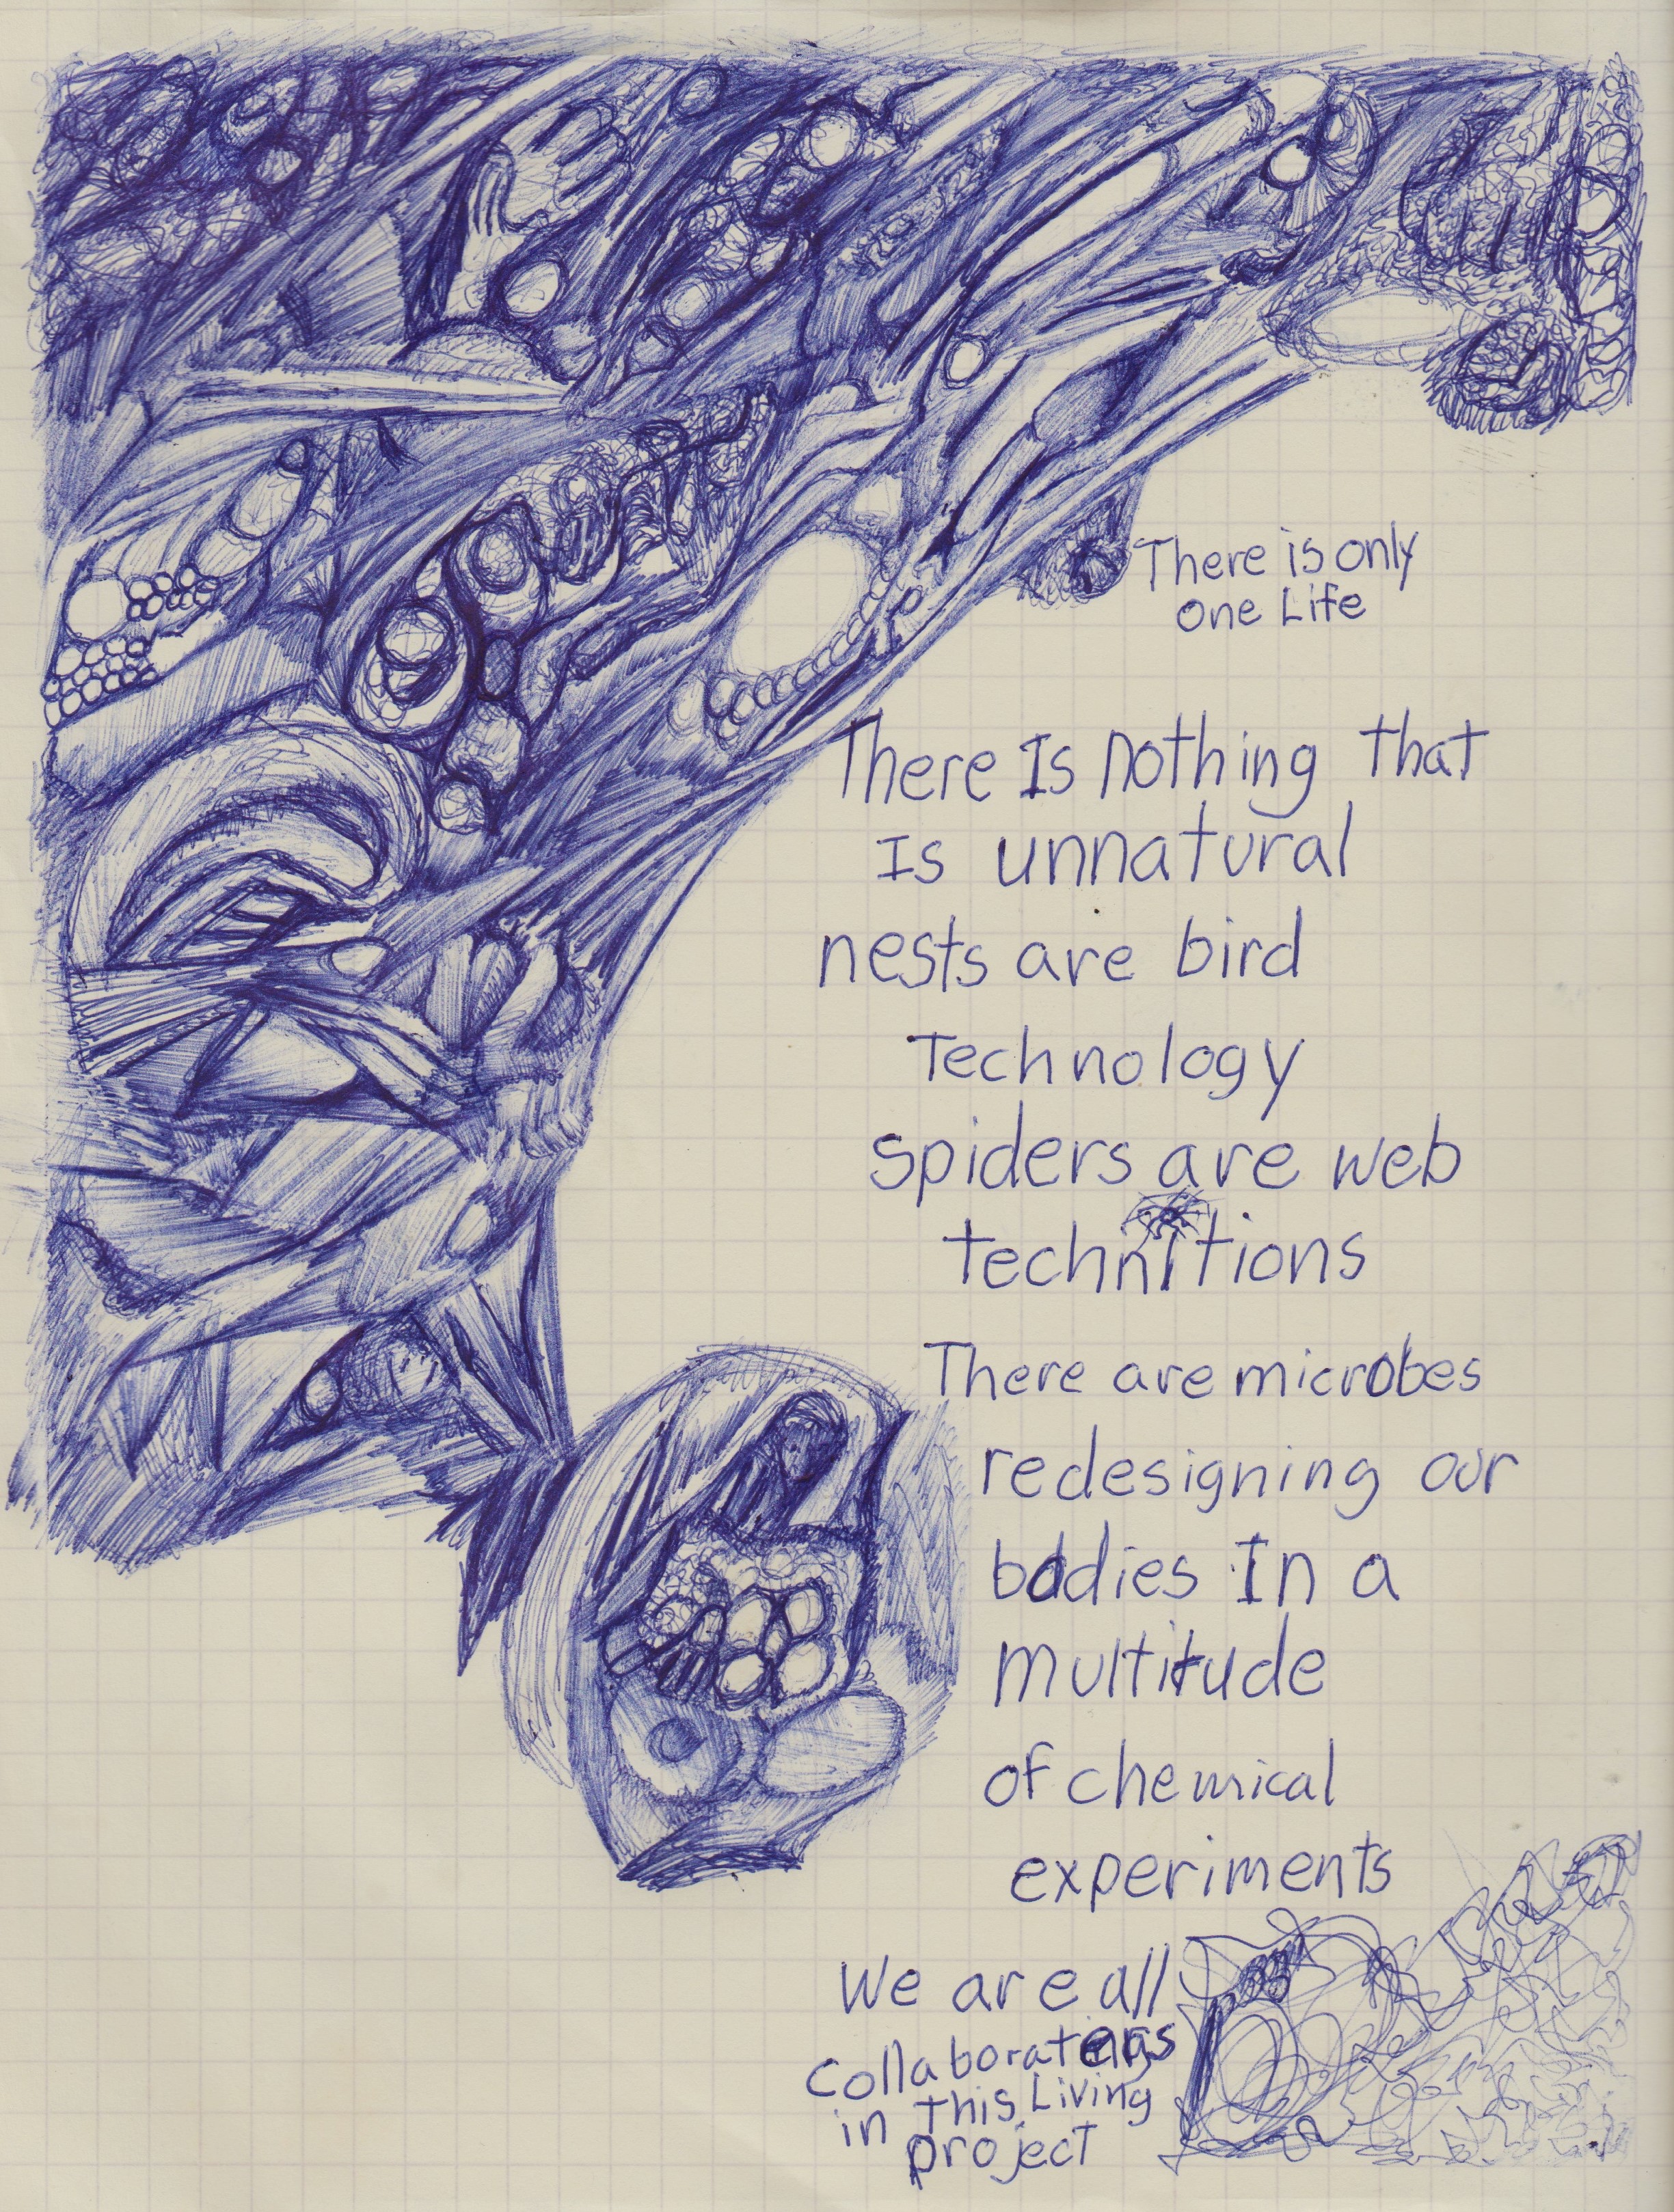 There is only
one Life
There Is nothing that
Is unnatural
nests are bird
Technology
spiders are web
technitions
There are microbes
redesigning our
bodies In a
multitude
of chemical
experiments
We are all
Collaboraters
in this Living
project